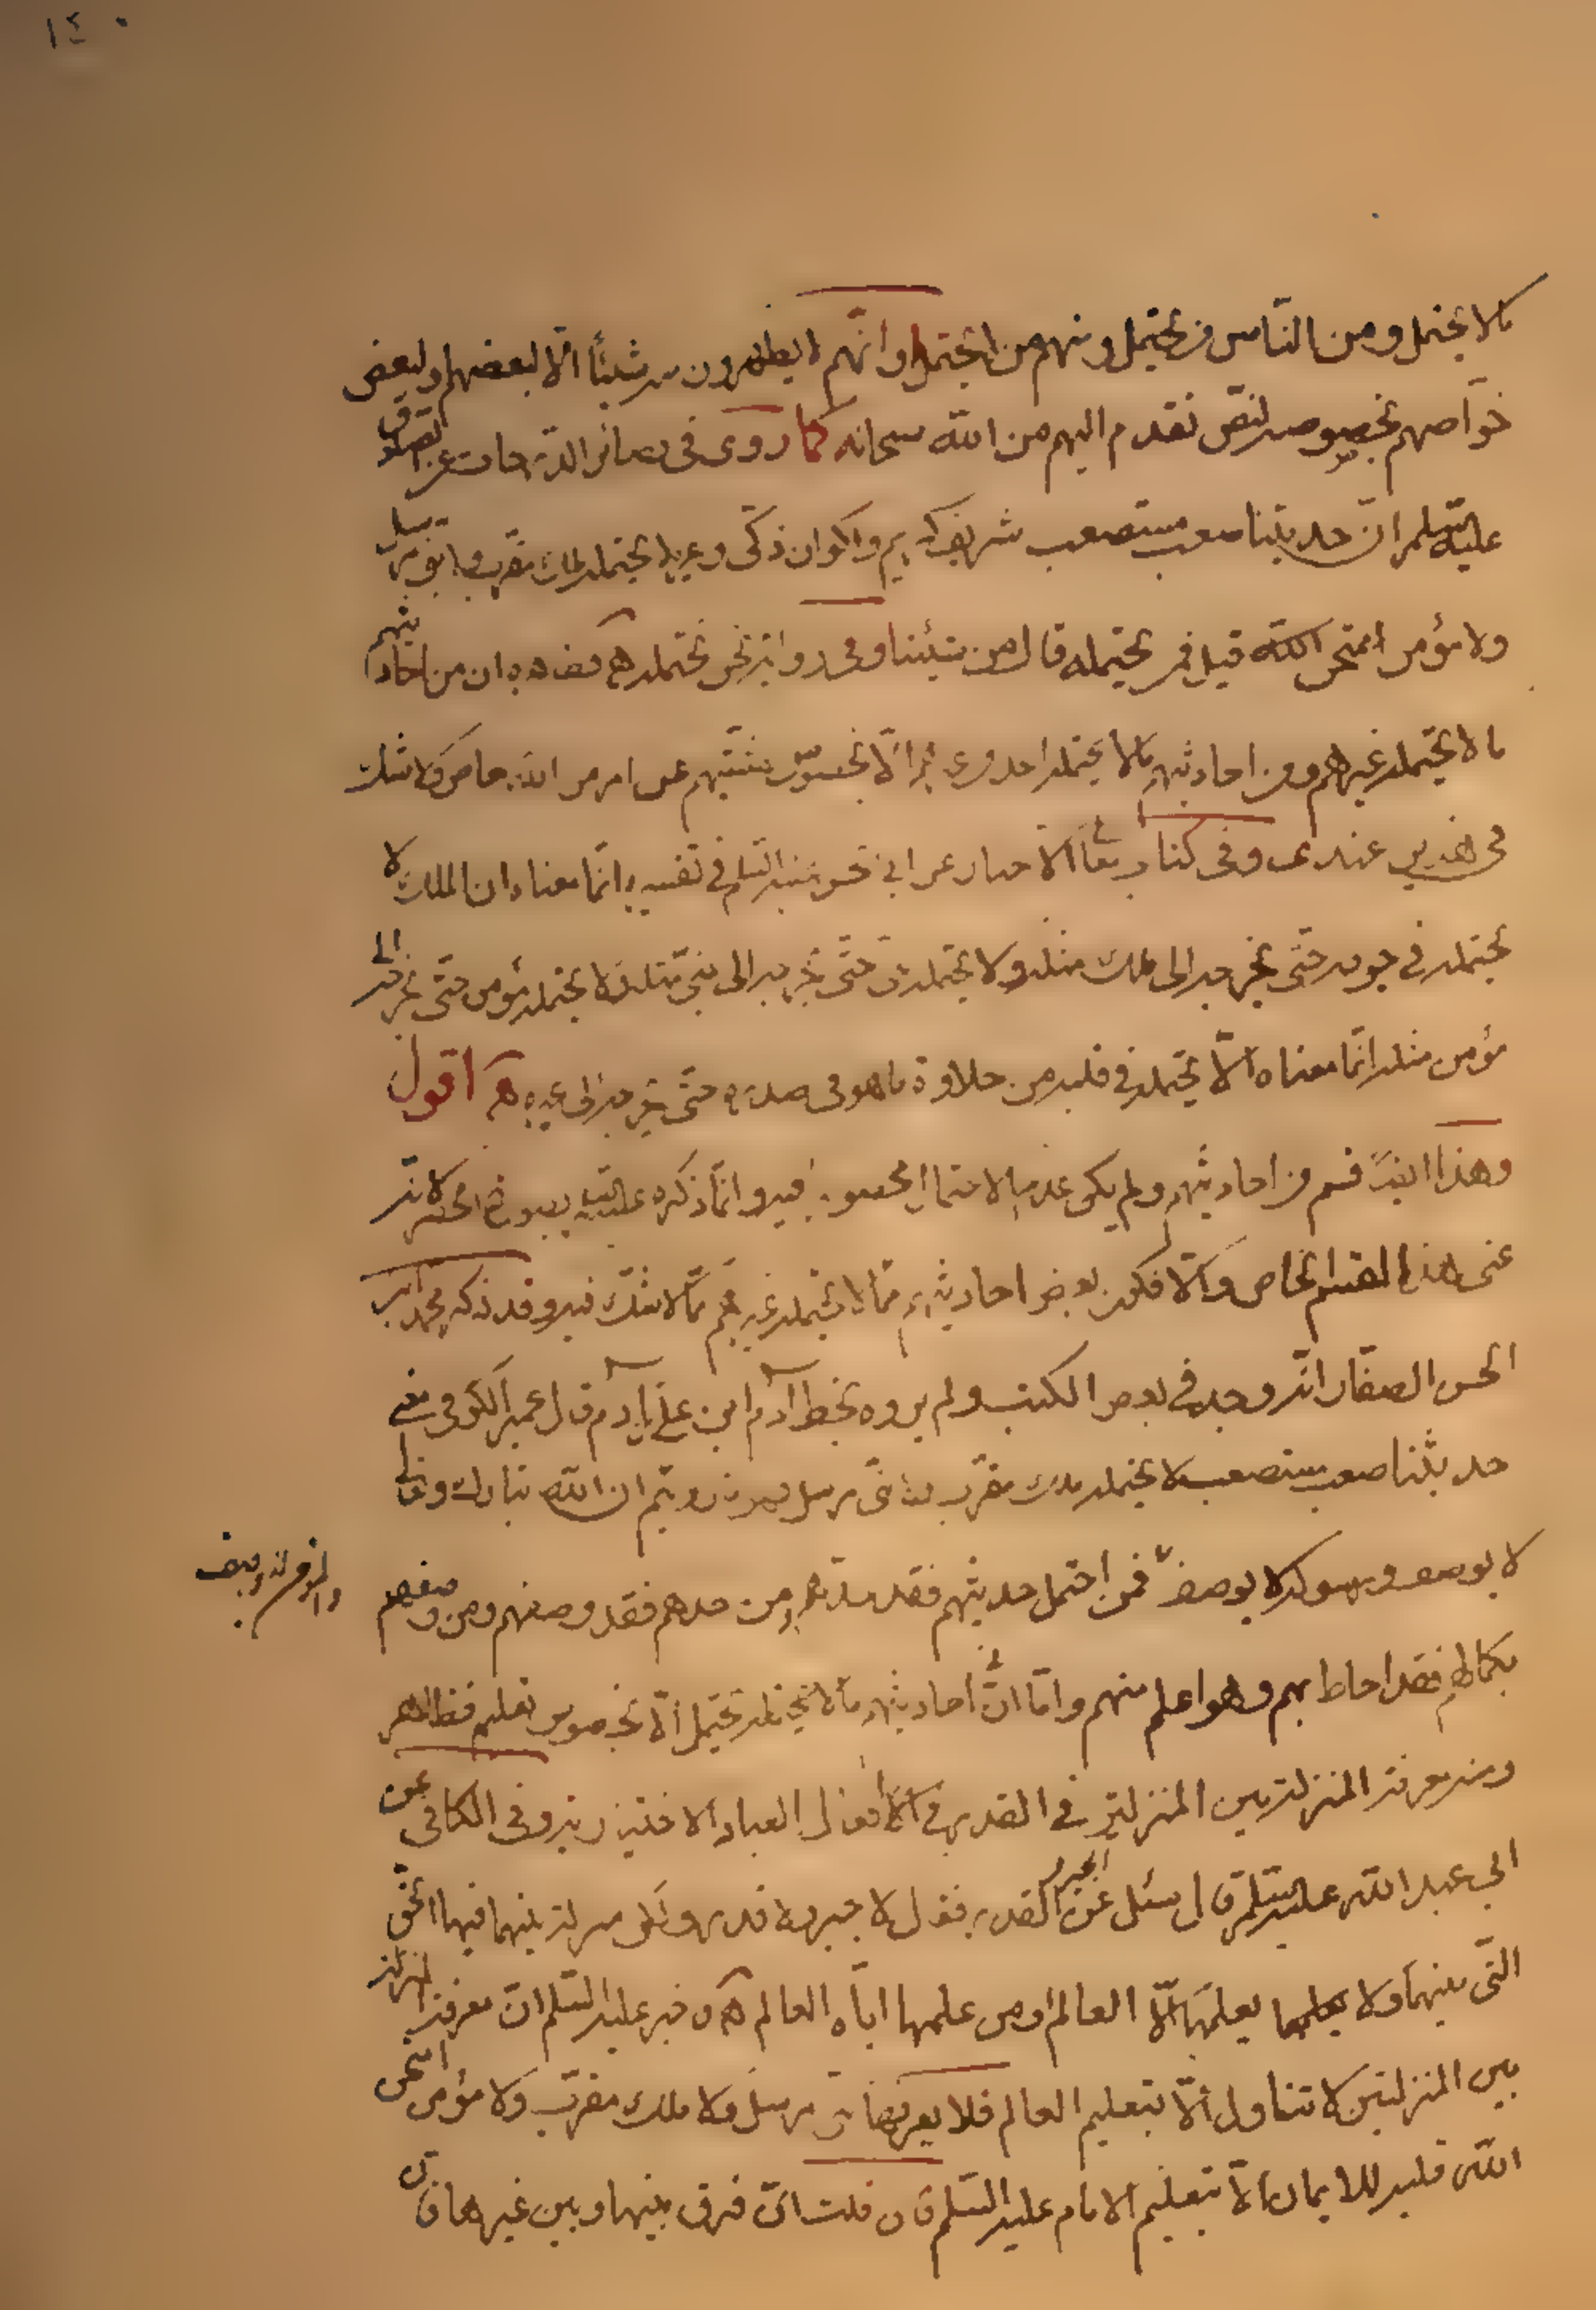 ١٤٠
ما لا يحتمل ومن الناس من يحتمل ومنهم من لا يحتمل وانهم لا يظهرون منه شيئا الا لبعضهم ولبعض
خواصهم بخصوصه لنص تقدم اليهم من الله سبحانه كما روى في بصائر الدرجات عن الصادق
عليه السلم ان حديثنا صعب مستصعب شريف كريم ذكوان ذكى وعر لا يحتمله ملك مقرب ولا نبي مرسل
ولا مؤمن امتحن الله قيل فمن يحتمله قال من شئنا وفى رواية نحن نحتمله هـ ان من احاديثهم
ما لا يحتمله غيرهم ومن احاديثهم ما لا يحتمله احد غيرهم الا بخصوص مشيتهم عن امر من الله خاص ولا شك
فى عندى وفى كتاب معانى الاخبار عن ابى عليه السلم فى تفسيره انما معناه ان الملك لا
يحتمله في جوفه حتى يخرجه الى ملك مثله ولا يحتمله نبى حتى يخرجه الى نبى مثله ولا يحتمله مؤمن حتى يخرجه الى
مؤمن مثله انما معناه الا يحتمله في قلبه من حلاوة ما هو فى صدره حتى يخرجه الى غيره هـ اقول
وهذا ايضا قسم من احاديثهم ولم يكن عدم الاحتمال محصورا فيه وانما ذكره عليه السلم بصورة الحصر لانه
عنى هذا القسم الخاص والا فكون بعض احاديثهم مما لا يحتمله غيرهم مما لا شك فيه وقد ذكر محمد ابن
الحسن الصفار انه وجد في بعض الكتب ولم يروه بخط آدم ابن على بن آدم قال عمير الكوفى معنى
حديثنا صعب مستصعب لا يحتمله ملك مقرب ولا نبى مرسل فهو ما رويتم ان الله تبارك وتعالى
لا يوصف ورسوله لا يوصف والمؤمن لا يوصف فمن احتمل حديثهم فقد حدهم ومن حدهم فقد وصفهم ومن وصفهم
بكمالهم فقد احاط بهم وهو اعلم منهم واما ان فى احاديثهم ما لا يحتمله محتمل الا بخصوص تعليم فظاهر
ومنه معرفة المنزلة بين المنزلتين في القدر في الافعال العباد الاختيارية وفى الكافى عن
ابي عبد الله عليه السلم قال سئل عن الجبر والقدر فقال لا جبر ولا قدر ولكن منزلة بينهما فيها الحق
التى بينهما ولا يعلمها يعلمها الا العالم او من علمها اياه العالم هـ اخبر عليه السلم ان معرفة المنزلة
بين المنزلتين لا تتناول الا بتعليم العالم فلا يعرفها نبى مرسل ولا ملك مقرب ولا مؤمن امتحن
الله قلبه للايمان الا بتعليم الامام عليه السلم فان قلت اى فرق بينها وبين غيرها فان